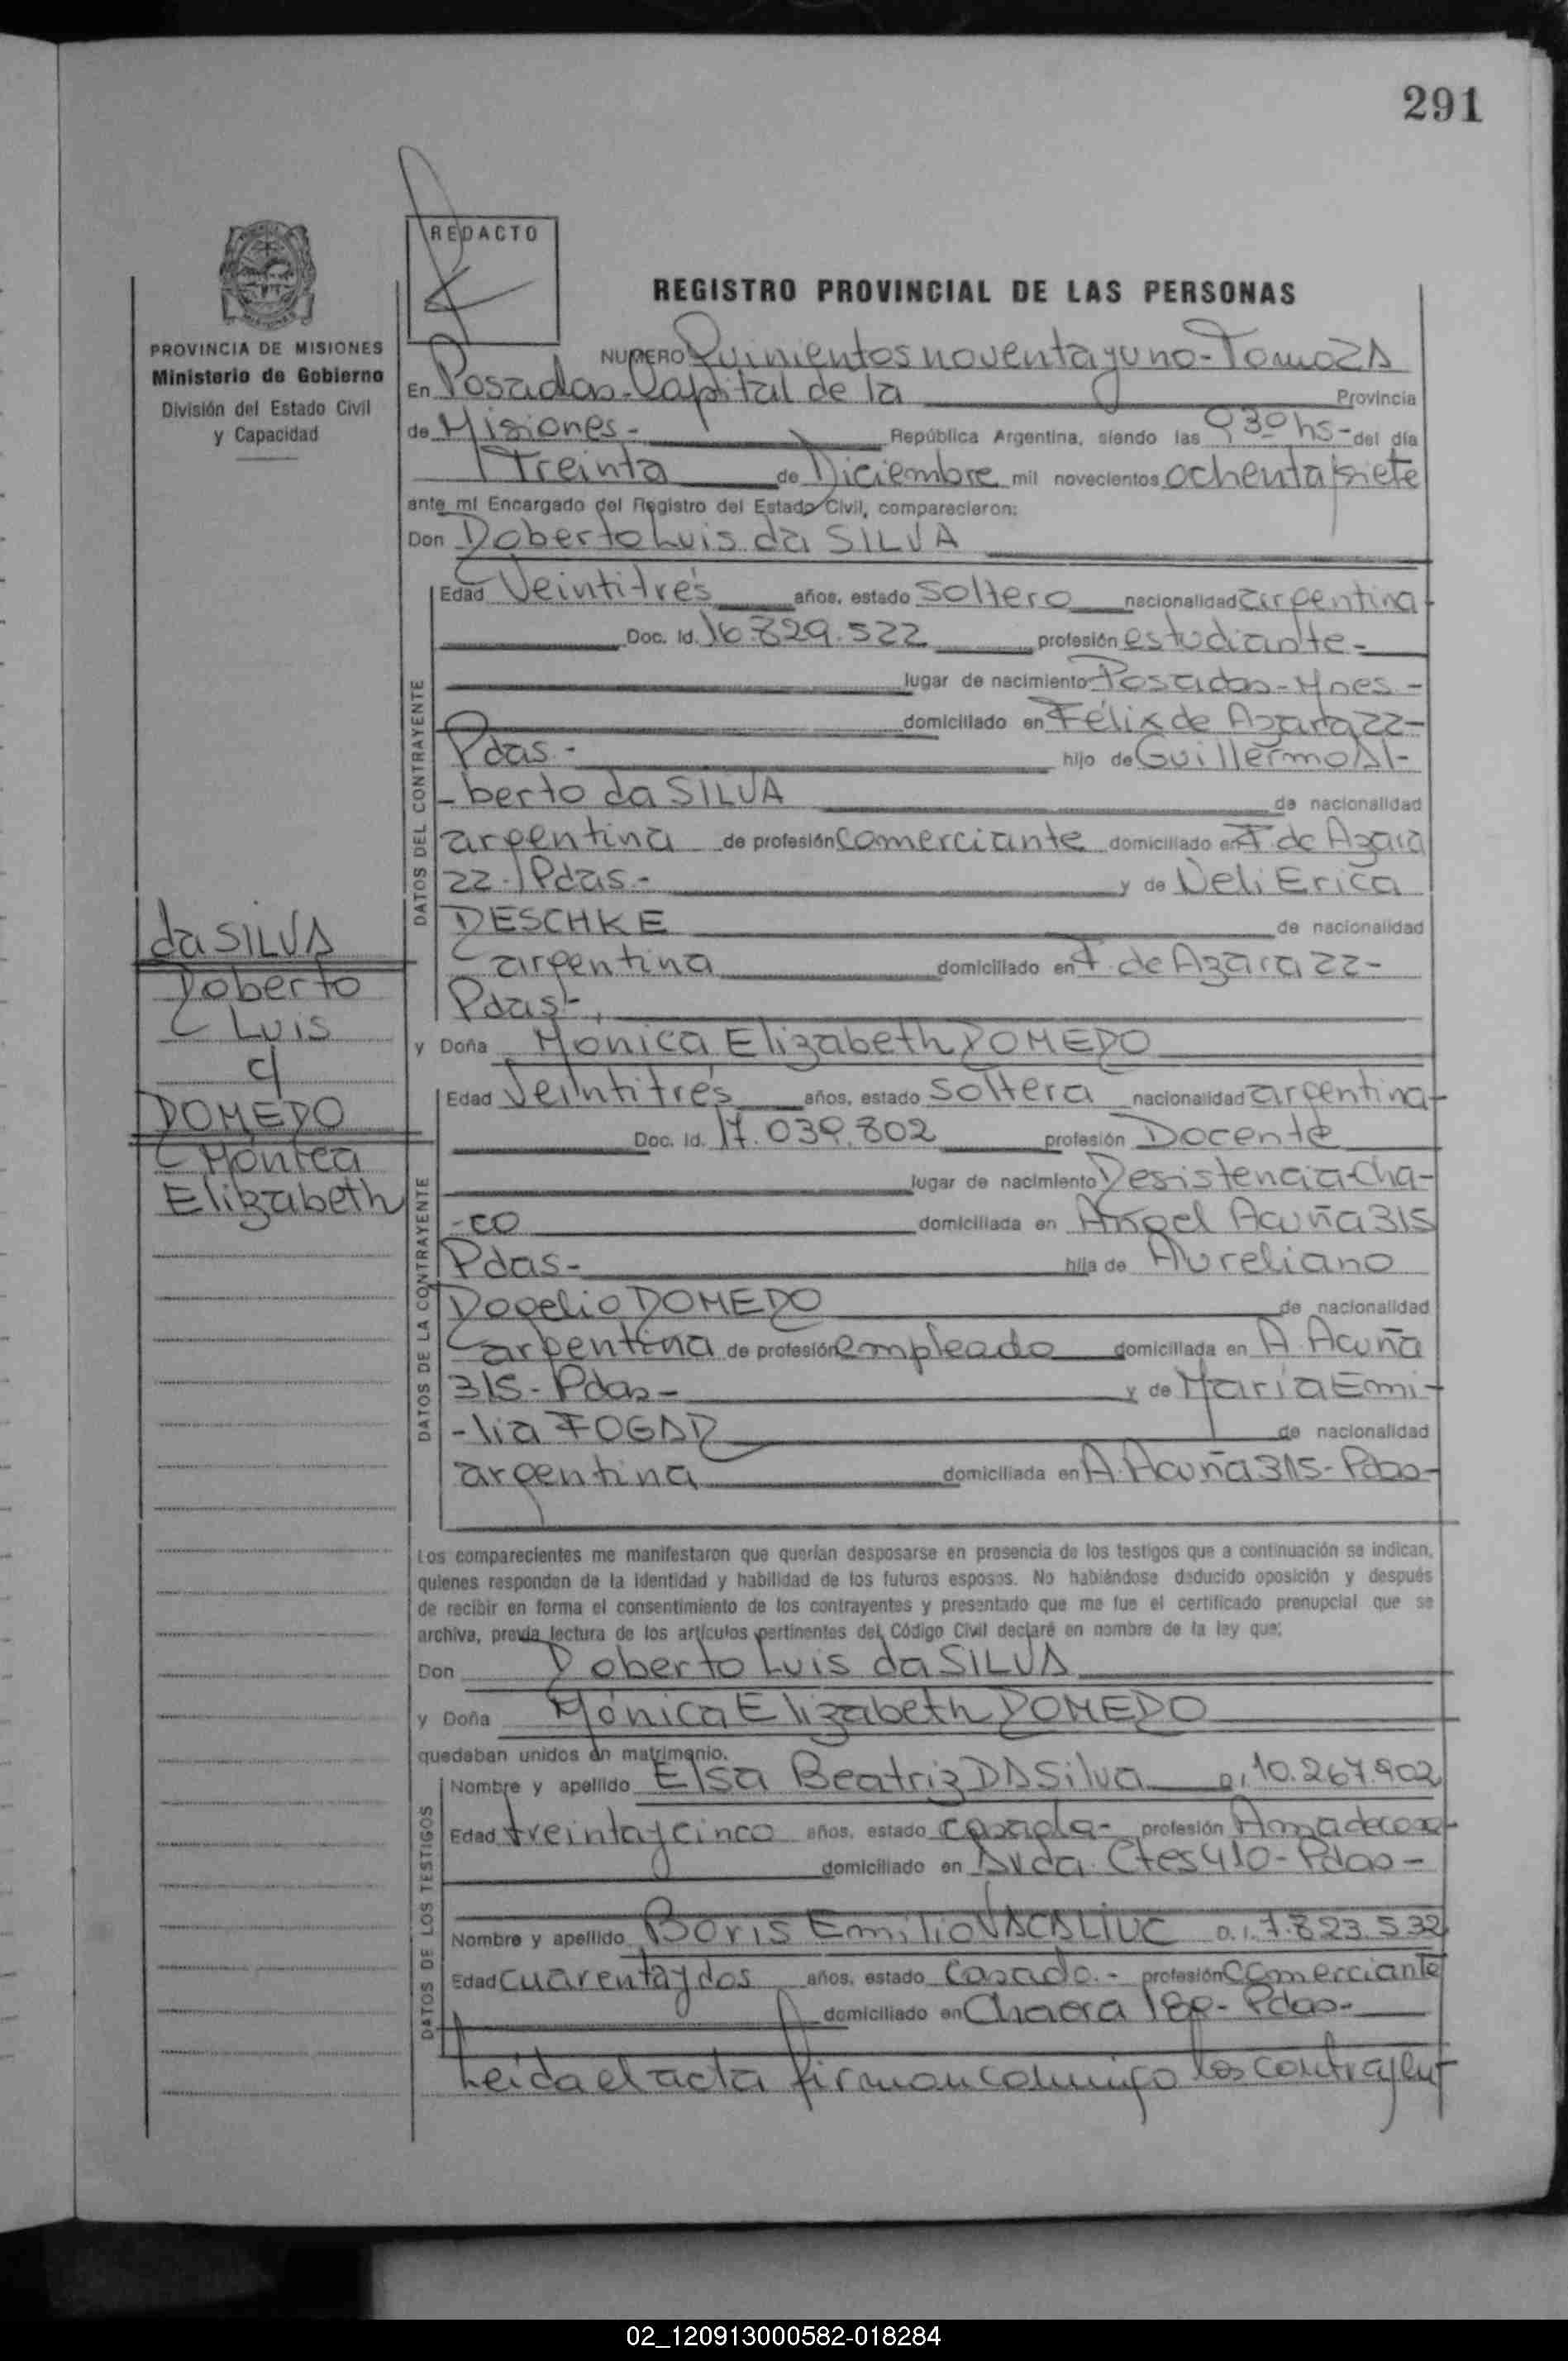 291
REDACTO
REGISTRO PROVINCIAL DE LAS PERSONAS
PROVINCIA DE MISIONES
Ministerio de Gobierno
División del Estado Civil
y Capacidad
NUMERO Quinientos noventa y uno - Tomo 2A
En Posadas - Capital de la Provincia
de Misiones - República Argentina, siendo las 930 hs - del día
Treinta de Diciembre mil novecientos ochenta y siete
ante mí Encargado del Registro del Estado Civil, comparecieron:
Don Roberto Luis da SILVA
DATOS DEL CONTRAYENTE
Edad Veintitrés años, estado soltero nacionalidad argentina
Doc. Id. 16.829.522 profesión estudiante -
lugar de nacimiento Posadas - Mnes -
domiciliado en Félix de Azara 22 -
Pdas - hijo de Guillermo Al-
- berto da SILVA de nacionalidad
argentina de profesión comerciante domiciliado en F. de Azara
22 - Pdas - y de Neli Erica
RESCHKE de nacionalidad
argentina domiciliado en F. de Azara 22 -
Pdas -
y Doña Mónica Elizabeth ROMERO
da SILVA
Roberto
Luis
c/
ROMERO
Mónica
Elizabeth
DATOS DE LA CONTRAYENTE
Edad Veintitrés años, estado soltera nacionalidad argentina -
Doc. Id. 17.039.802 profesión Docente
lugar de nacimiento Resistencia - Cha-
- co domiciliada en Angel Acuña 315
Pdas - hija de Aureliano
Rogelio ROMERO de nacionalidad
argentina de profesión empleado domiciliada en A. Acuña
315 - Pdas - y de María Emi-
- lia FOGAR de nacionalidad
argentina domiciliada en A. Acuña 315 - Pdas -
Los comparecientes me manifestaron que querían desposarse en presencia de los testigos que a continuación se indican,
quienes responden de la identidad y habilidad de los futuros esposos. No habiéndose deducido oposición y después
de recibir en forma el consentimiento de los contrayentes y presentado que me fue el certificado prenupcial que se
archiva, previa lectura de los artículos pertinentes del Código Civil declaré en nombre de la ley que:
Don Roberto Luis da SILVA
y Doña Mónica Elizabeth ROMERO
quedaban unidos en matrimonio.
DATOS DE LOS TESTIGOS
Nombre y apellido Elsa Beatriz DA Silva D.I. 10.267.902
Edad treinta y cinco años, estado casada - profesión Ama de casa
domiciliado en Avda. Ctes 410 - Pdas -
Nombre y apellido Boris Emilio VACALIUC D.I. 7.823.532
Edad cuarenta y dos años, estado casado - profesión comerciante
domiciliado en Chacra 189 - Pdas -
Leída el acta firman conmigo los contrayent
02_120913000582-018284